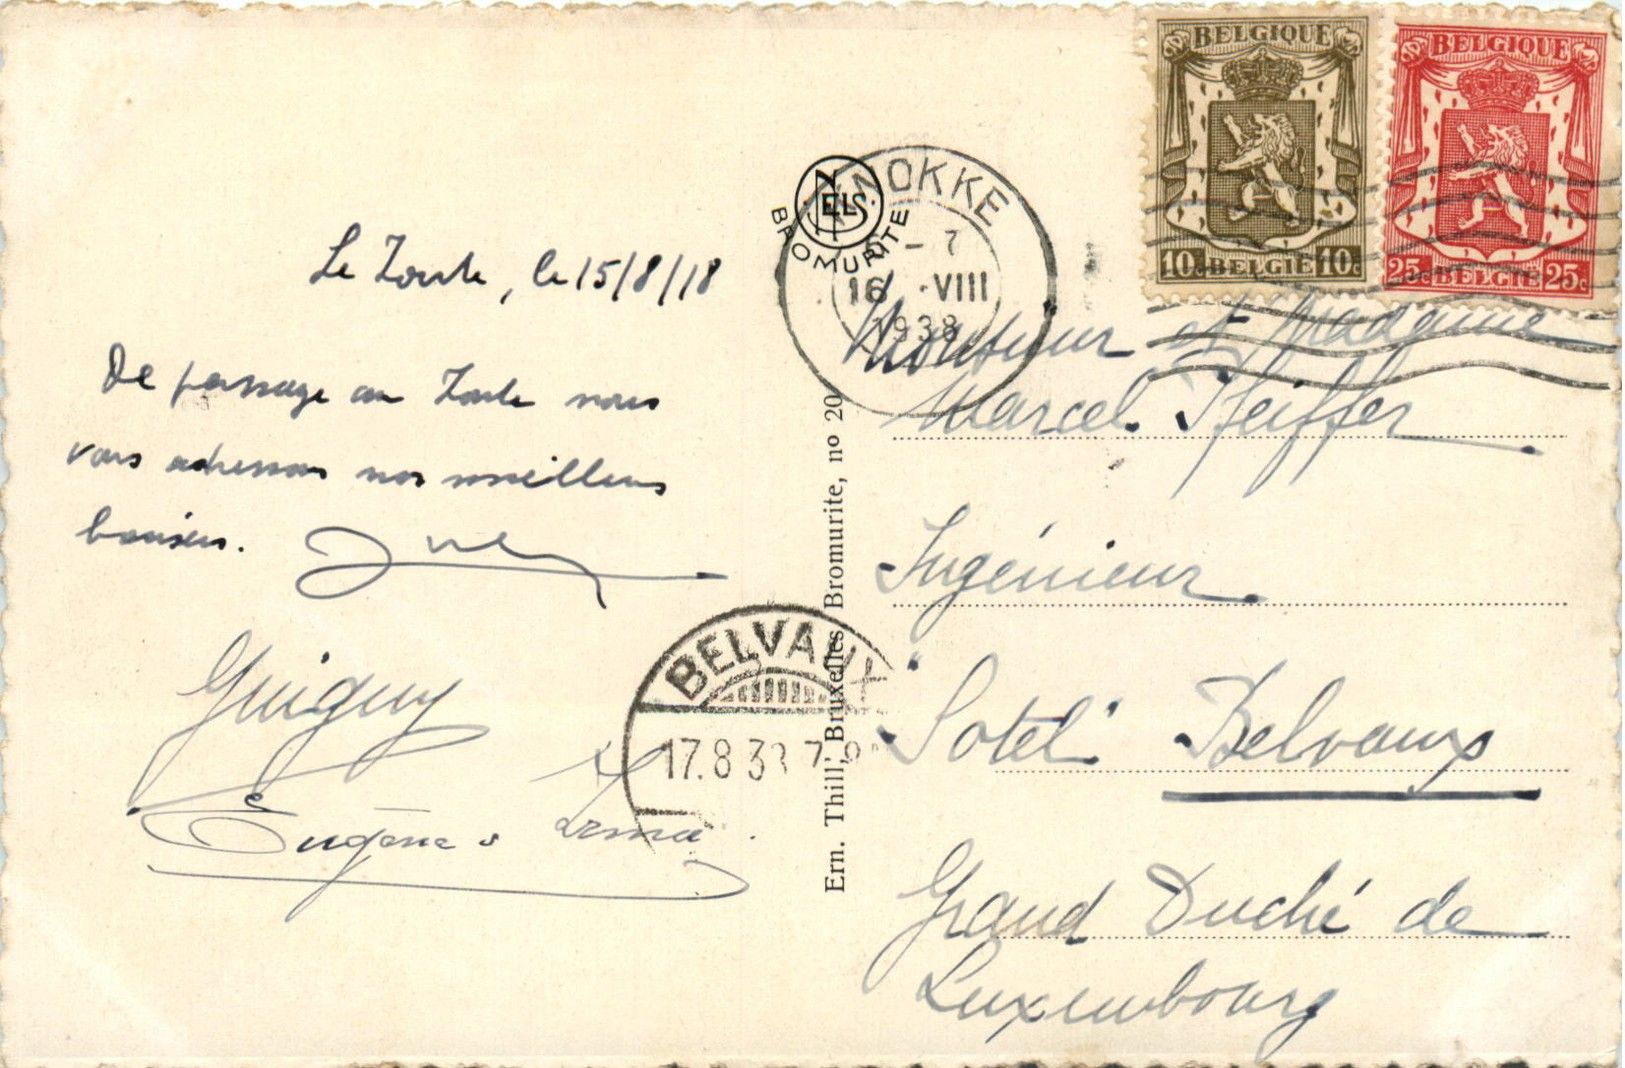 Le Zoute, le 15/8/18
De passage au Zoute nous
vous adressons nos meilleurs
baisers.
Guiguy
Eugène & Irma.
BELGIQUE
10c BELGIË 10c
BELGIQUE
25c BELGIË 25c
KNOKKE
6 - 7
16 VIII
1938
NELS
BROMURITE
BELVAUX
17.8.38 7-8
Ern. Thill, Bruxelles Bromurite, no 20
Monsieur et Madame
Marcel Pfeiffer
Ingénieur
"Sotel" Belvaux
Grand Duché de
Luxembourg